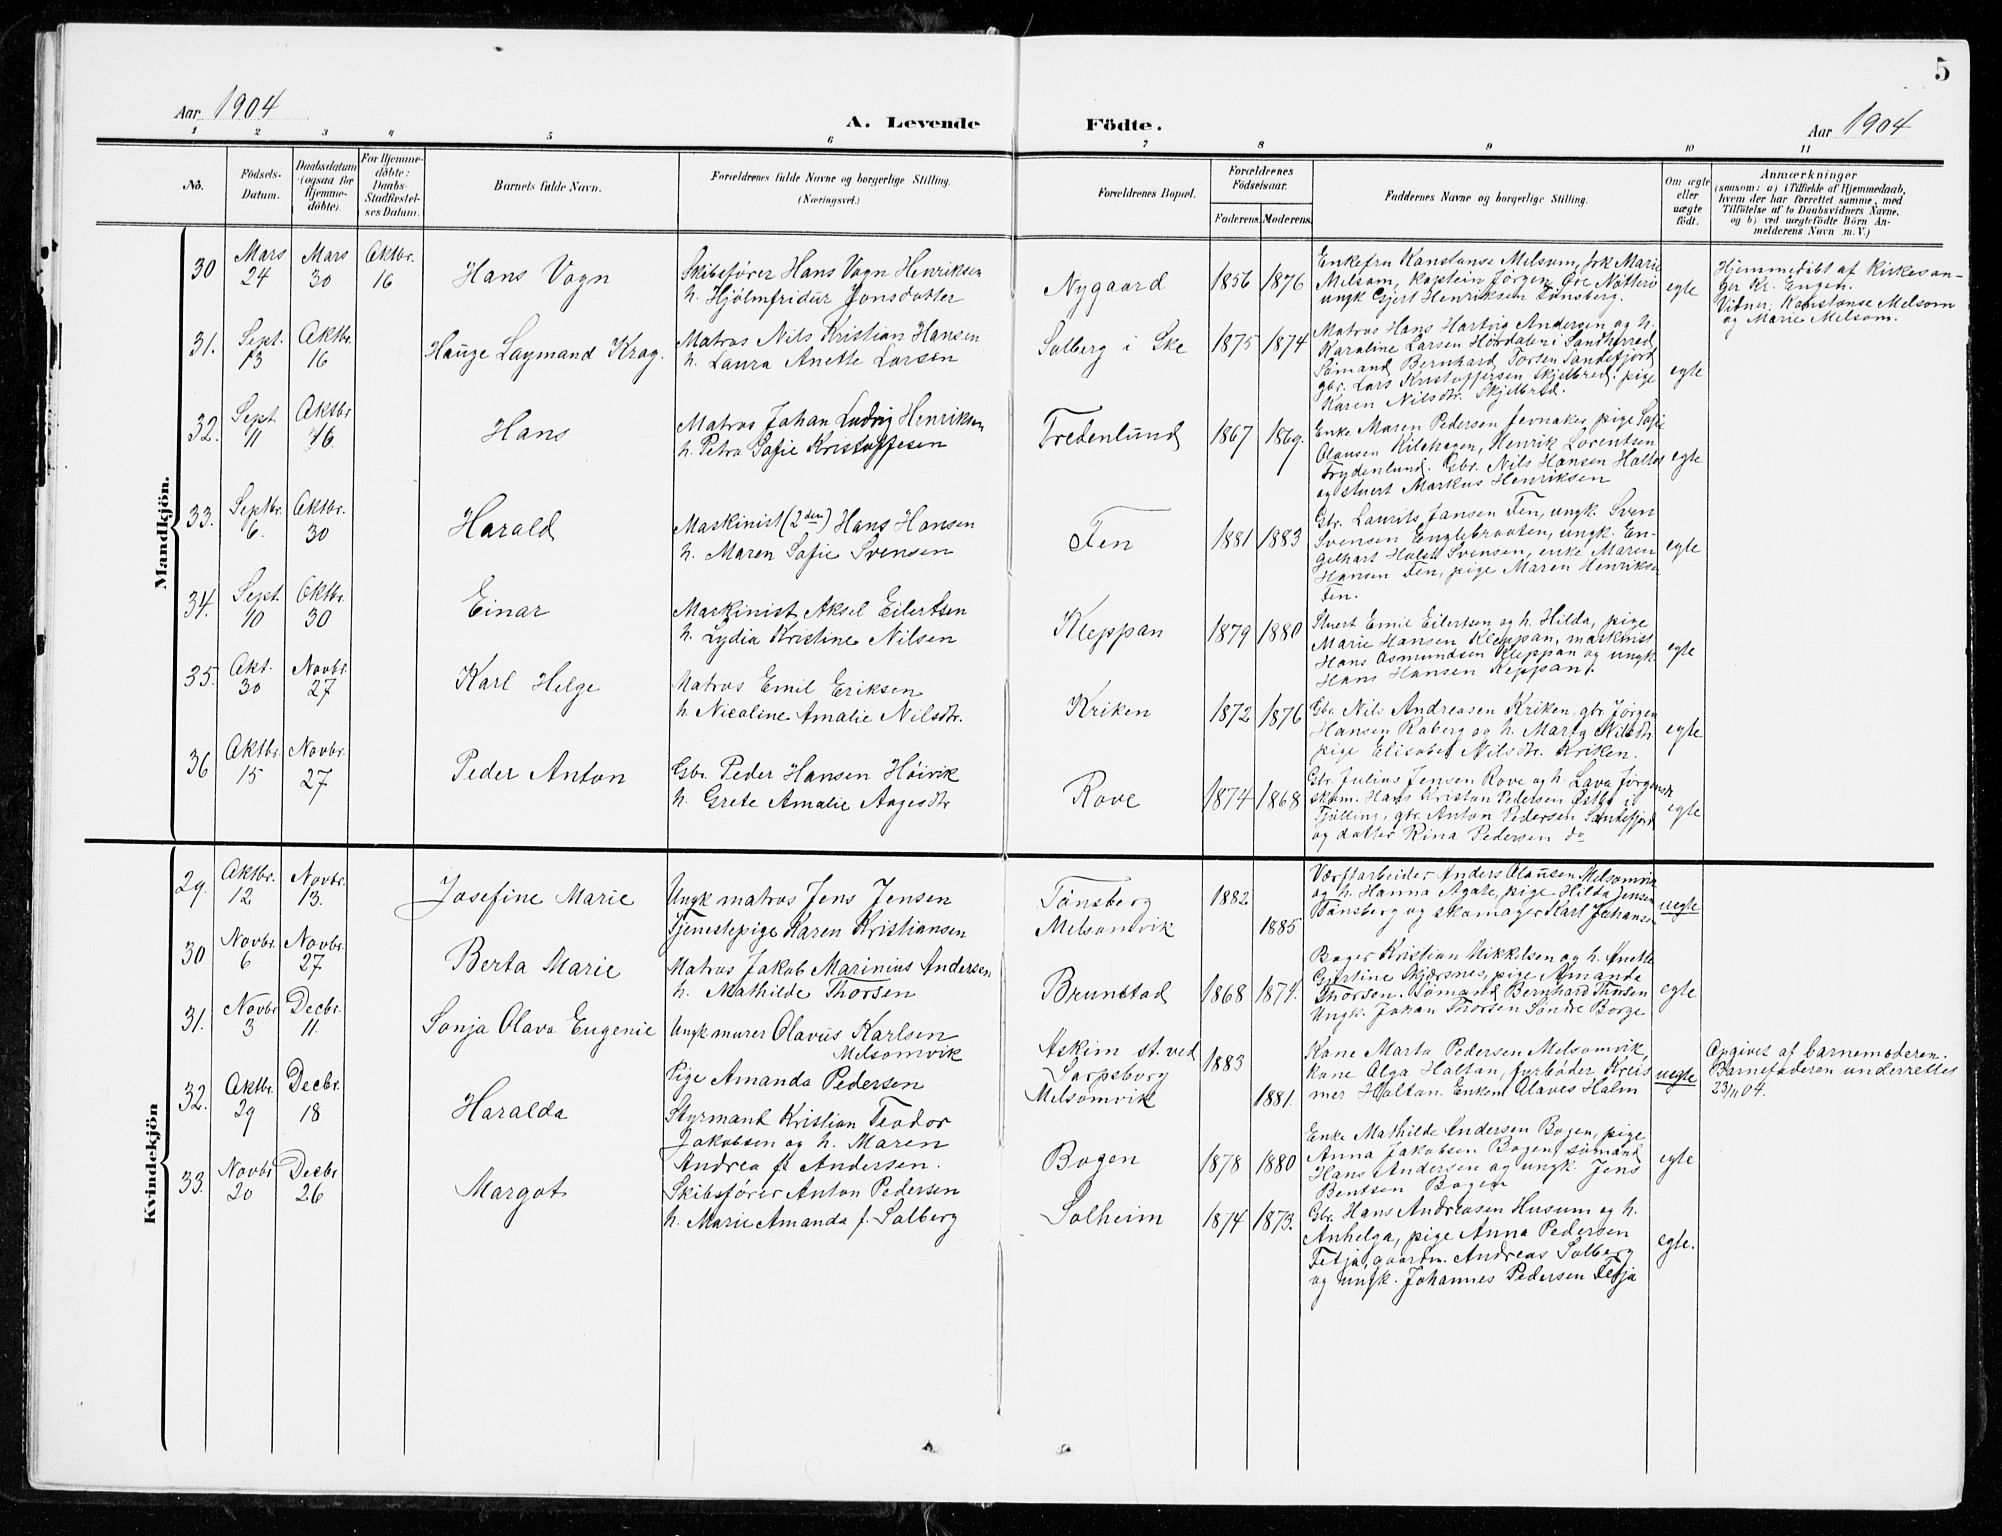 5
Aar 1904
A. Levende Födte.
Aar 1904
1 2 3 4 5 6 7 8 9 10 11
No.
Födsels-
Datum.
Daabsdatum
(ogsaa for
Hjemme-
döbte).
For Hjemme-
döbte:
Daabs-
Stadfæstel-
ses Datum.
Barnets fulde Navn.
Forældrenes fulde Navne og borgerlige Stilling.
(Næringsvei.)
Forældrenes Bopæl.
Forældrenes
Födselsaar.
Faderens. Moderens.
Faddernes Navne og borgerlige Stilling.
Om ægte
eller
uægte
födt.
Anmærkninger
(saasom: a) i Tilfælde af Hjemmedaab,
hvem der har forrettet samme, med
Tilföielse af to Daabsvidners Navne,
og b) ved uægtefödte Börn An-
melderens Navn m. V.)
Mandkjön.
30
Mars
24
Mars
30
Oktbr.
16
Hans Vagn
Skibsfører Hans Vagn Henriksen
h. Hjölmfridur Jonsdatter
Nygaard
1856 1876
Enkefru Konstanse Melsom, frk Marie
Melsom, kaptein Jørgen Øre Nøtterø
ungk Gjert Henriksen Tønsberg.
egte
Hjemmedøbt af Kirkesan-
ger Kr. Engen.
Vidner: Konstanse Melsom
og Marie Melsom.
31.
Sept.
13
Oktbr.
16
Hauge Laymand Krag.
Matros Nils Kristian Hansen
h. Laura Anette Larsen
Solberg i Ske
1875 1874
Matros Hans Hartvig Andersen og h.
Karaline Larsen Hørdalen i Sandherred,
Sømand Bernhard Torsen Sandefjord
gbr. Lars Kristoffersen Skjelbred, pige
Karen Nilsdtr. Skjelbred.
egte
32.
Sept
11
Oktbr
16.
Hans
Matros Johan Ludvig Henriksen
h. Petra Sofie Kristoffesen
Fredenlund
1867 1869.
Enke Maren Pedersen Jernakes, pige Sofie
Olausen Kilehagen, Henrik Lorentsen
Frydenlund. Gbr. Nils Hansen Holtet
og stuert Markus Henriksen
egte
33.
Septbr.
6.
Oktbr.
30
Harald
Maskinist (2den) Hans Hansen
h. Maren Sofie Svensen
Fen
1881 1883
Gbr. Laurits Jansen Fen, ungk. Sven
Svensen Englebraaten, ungk. En-
gelhart Holst Svensen, enke Maren
Hansen Fen, pige Maren Henriksen
Fen.
egte
34.
Sept.
10
Oktbr.
30
Einar
Maskinist Aksel Eilertsen
h. Lydia Kristine Nilsen
Kleppan
1879 1880
Stuert Emil Eilertsen og h. Hilda, pige
Marie Hansen Kleppan, maskinist
Hans Osmundsen Kleppan og ungk
Hans Hansen Keppan.
egte
35.
Okt.
30
Novbr.
27
Karl Helge
Matros Emil Eriksen
h. Nicaline Amalie Nilsdtr.
Kriken
1872 1876
Gbr. Nils Andreasen Kriken, gbr Jørgen
Hansen Raberg og h. Marta Nilsdtr.
pige Elisabet Nilsdtr. Kriken.
egte
36
Oktbr.
15
Novbr.
27
Peder Anton
Gbr. Peder Hansen Høivik
h. Grete Amalie Aagesdtr
Rove
1874 1868
Gbr. Julius Jensen Rove og h. Lava Jørgensen
skom. Hans Kristan Pedersen Østby i
Tjølling, gbr. Anton Pedersen Sandefjord
og datter Rina Pedersen do
egte
Kvindekjön
29.
Oktbr.
12
Novbr.
13.
Josefine Marie
Ungk matros Jens Jensen
Tjenestepige Karen Kristiansen
Tønsberg
Melsomvik
1882
1885
Værftarbeider Anders Olausen Melsomvik
og h. Hanna Agate, pige Hilda Jensen
Tønsberg og skomager Karl Johansen
uegte
30
Novbr.
6
Novbr.
27
Berta Marie
Matros Jakob Marinius Andersen
h. Mathilde Thorsen
Brunstad
1868 1874.
Bager Kristian Mikkelsen og h. Anette
Gjertine Skjærsnes, pige Amanda
Thorsen. Sømand Bernhard Thorsen
Ungk. Johan Thorsen Søndre Borge
egte
31.
Novbr
3
Decbr.
11
Sonja Olava Eugenie
Ungk murer Olavus Karlsen
Melsomvik
Pige Amanda Pedersen
Askim st. ved
Sarpsborg
Melsomvik
1883
1881.
Kone Marta Pedersen Melsomvik,
kone Olga Holtan, fyrbøder Kreis
mer Holtan. Enkem. Olaves Halm
uegte
Opgivet af barnemoderen.
Barnefaderen underrettet
23/11 04.
32.
Oktbr.
29
Decbr.
18
Haralda
Styrmand Kristian Teodor
Jakobsen og h. Maren
Andrea f. Andersen.
Bogen
1878 1880
Enke Mathilde Andersen Bogen, pige
Anna Jakobsen Bogen, sømand
Hans Andersen og ungk. Jens
Bentsen Bogen
egte
33.
Novbr
20
Decbr
26
Margot
Skibsfører Anton Pedersen
h. Marie Amanda f. Solberg
Solheim
1874 1873.
Gbr. Hans Andreasen Husum og h.
Anhelga, pige Anna Pedersen
Fetja, gaardm. Andreas Solberg
og ungk. Johannes Pedersen Fetja
egte.